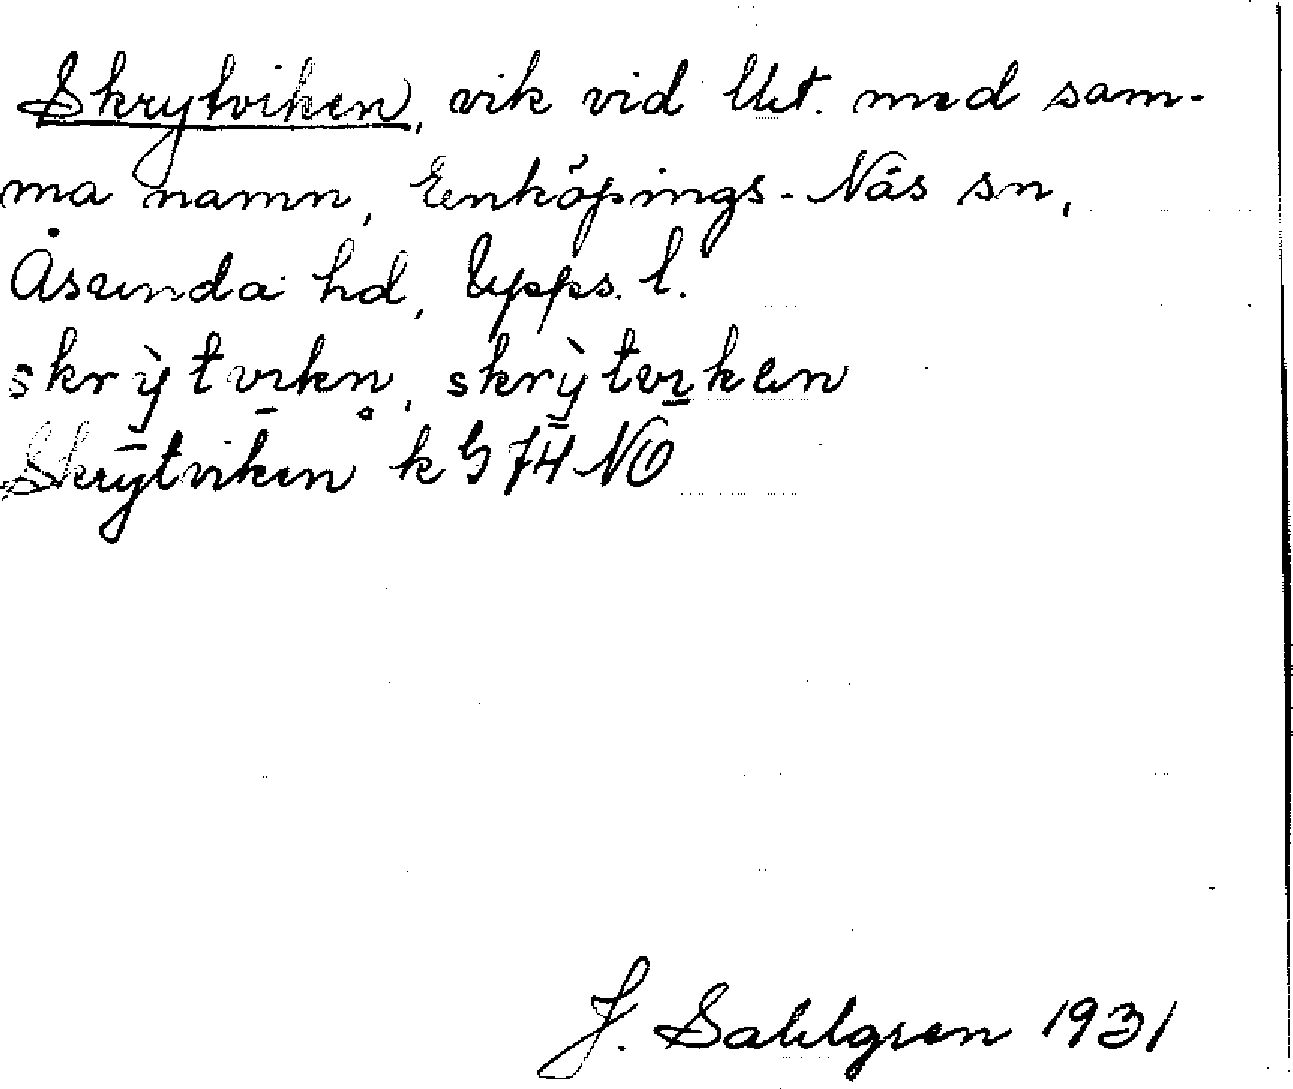 Skrytviken, vik vid lht. med sam-
ma namn, Enköpings-Näs sn,
Åsunda hd, Upps. l.
skrỳtvikn̥, skrỳtviken
Skrytviken k G 74 NO
J. Sahlgren 1931